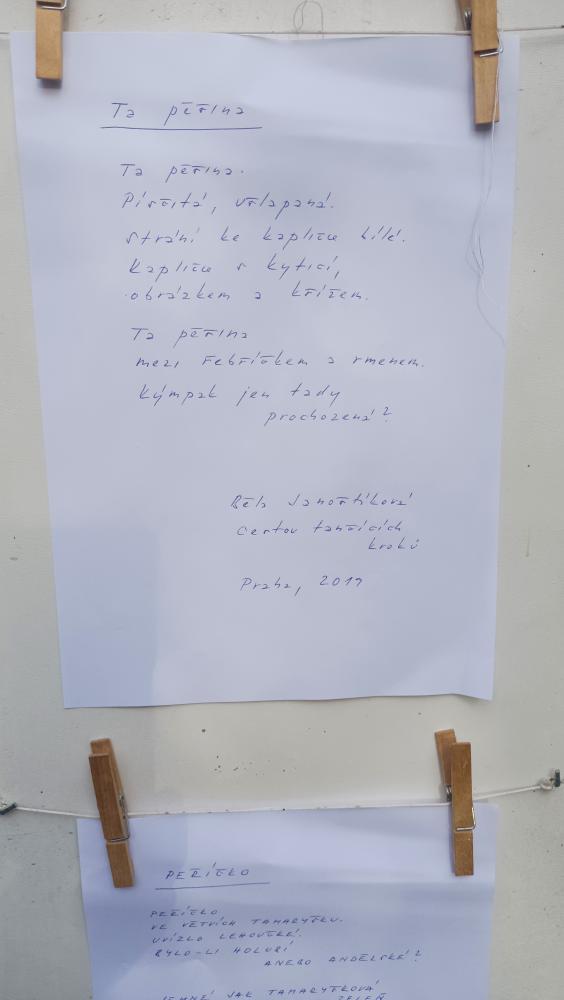 Ta pěšina
Ta pěšina.
Písčitá, všlapaná.
strání ke kapličce bílé.
Kapličce s kyticí,
obrázkem a křížem.
Ta pěšina
mezi řebříčkem a rmenem.
Kýmpak jen tady
prochozená?
Běla Janoštíková
Cestou tančících
kroků
Praha, 2019
PEŘÍČKO
PEŘÍČKO
VE VĚTVÍCH TAMARYŠKU.
UVÍZLO LEHOUČKÉ.
BYLO-LI HOLUBÍ
ANEBO ANDĚLSKÉ?
JEMNÉ JAK TAMARYŠKOVÁ
ZELEŇ